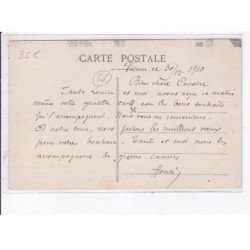 35€
CARTE POSTALE
Vienne, ce 30/12. 1910
Bien chère Cousine
Tante Louise et moi avons reçu ce matin
M
votre gentille carte avec les bons souhaits
qui l'accompagnent. Nous vous en remercions.
Et à notre tour, nous faisons les meilleurs vœux
pour votre bonheur. Tante et moi nous les
accompagnons de gros
Henri